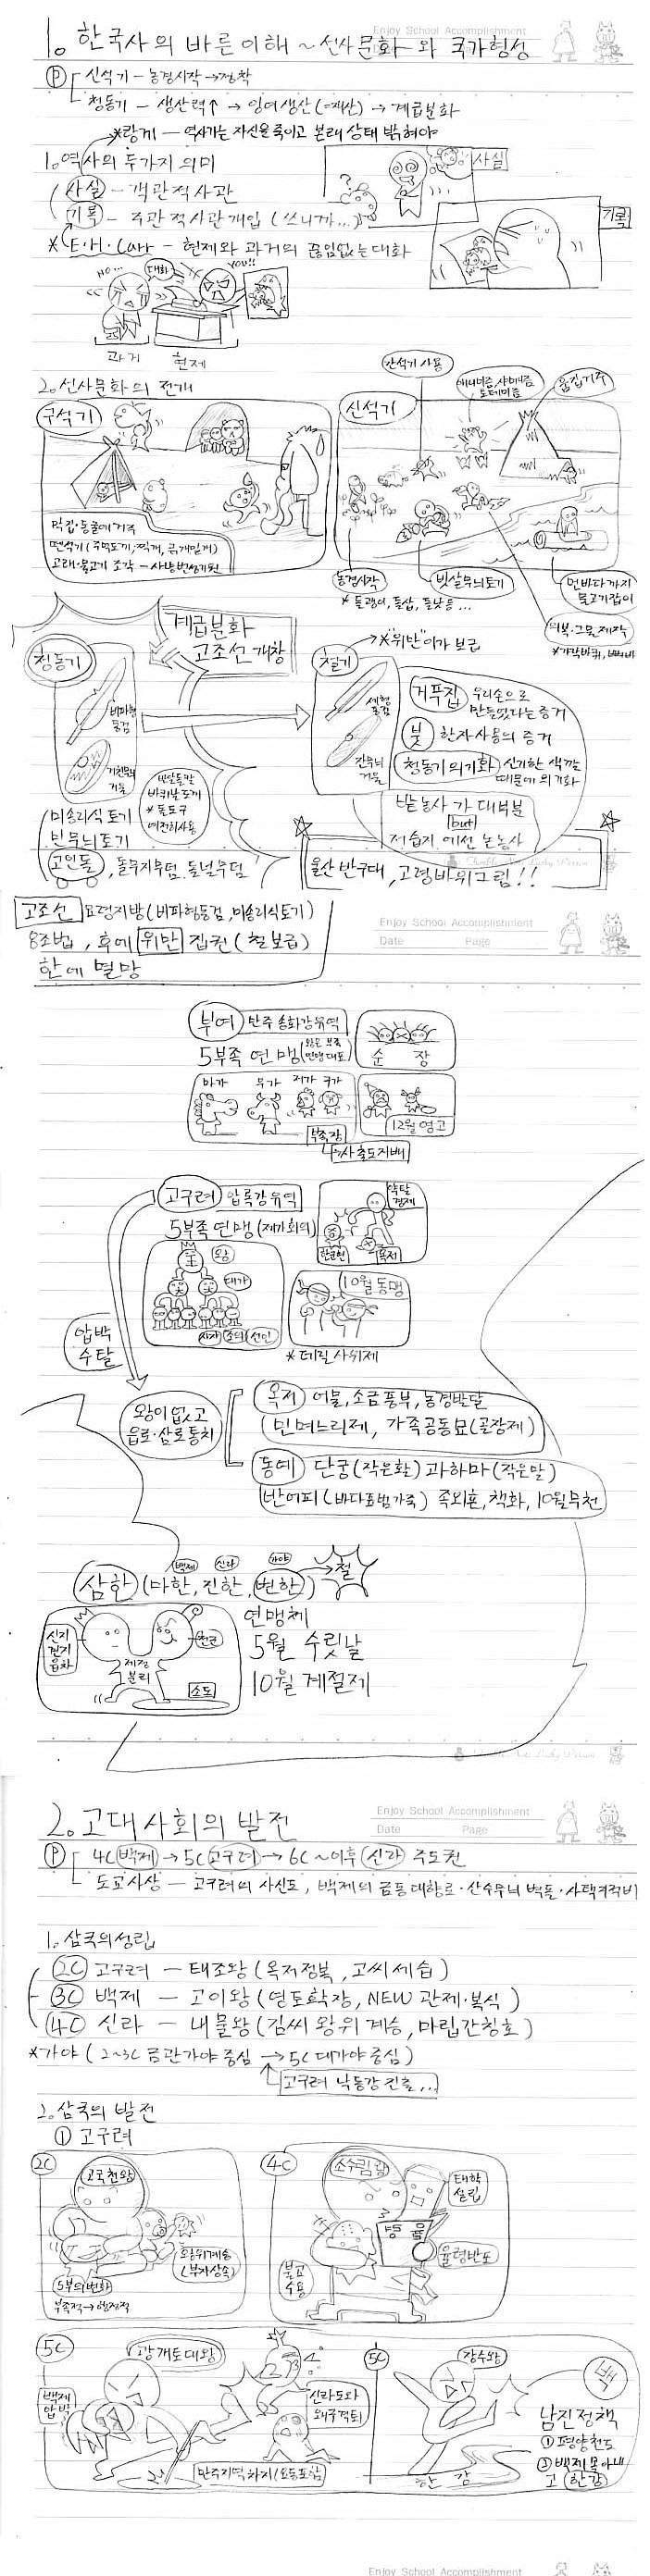 Enjoy School Accomplishment
1. 한국사의 바른이해 ~ 선사문화와 국가형성
Ⓟ 신석기 - 농경시작 → 정착
청동기 - 생산력↑ → 잉여생산(사유재산) → 계급분화
*랑케 - 역사가는 자신을 죽이고 본래 상태 밝혀야
1. 역사의 두가지 의미
사실 - 객관적사관
사실
기록 - 주관적사관개입 (쓰니까...)
기록
* E·H·Carr - 현재와 과거의 끊임없는 대화
NO...
대화
YOU!!
과거 현재
2. 선사문화의 전개
간석기 사용
애니미즘, 샤머니즘, 토테미즘
움집거주
구석기
신석기
막집·동굴에거주
뗀석기 (주먹도끼, 찍개, 긁개, 밀개)
고래·물고기 조각 - 사냥번성기원
농경시작
* 돌괭이, 돌삽, 돌낫 등...
빗살무늬토기
먼바다까지 물고기잡이
의복·그물 제작
*가락바퀴, 뼈바늘
계급분화
고조선 개창
청동기
비파형동검
거친무늬거울
반달돌칼
바퀴날도끼
* 돌도구 여전히사용
미송리식 토기
민무늬토기
고인돌, 돌무지무덤, 돌널무덤
철기
*"위만"이가 보급
세형동검
잔무늬거울
거푸집 우리손으로 만들었다는 증거
붓 한자사용의 증거
청동기 의기화 신기한 색깔 때문에 의기화
밭농사가 대부분
but
저습지에선 논농사
울산 반구대, 고령바위그림!!
고조선 요령지방 (비파형동검, 미송리식토기)
8조법, 후에 위만 집권 (철보급)
한에 멸망
Enjoy School Accomplishment
Date Page
부여 만주 송화강유역
5부족 연맹
순장
마가 우가 저가 구가
부족장
사출도지배
12월 영고
고구려 압록강유역
5부족연맹 (제가회의)
약탈경제
옥저
왕
대가
사자 조의 선인
10월 동맹
* 데릴사위제
압박 수탈
왕이 없고 읍로·삼로통치
옥저 어물, 소금풍부, 농경발달
(민며느리제, 가족공동묘(골장제)
동예 단궁(작은활) 과하마(작은말)
반어피 (바다표범가죽) 족외혼, 책화, 10월무천
백제 신라 가야
삼한 (마한, 진한, 변한) → 철
신지 견지 읍차
제정분리
천군
소도
연맹체
5월 수릿날
10월 계절제
2. 고대사회의 발전
Enjoy School Accomplishment
Date Page
Ⓟ 4C 백제 → 5C 고구려 → 6C ~이후 신라 주도권
도교사상 - 고구려의 사신도, 백제의 금동대향로·산수무늬 벽돌·사택지적비
1. 삼국의성립
2C 고구려 - 태조왕 (옥저정복, 고씨세습)
3C 백제 - 고이왕 (영토확장, NEW 관제·복식)
4C 신라 - 내물왕 (김씨 왕위 계승, 마립간칭호)
*가야 (2~3C 금관가야 중심 → 5C 대가야 중심)
고구려 낙동강 진출...
2. 삼국의 발전
① 고구려
2C
고국천왕
왕위계승 (부자상속)
5부의변화
부족적→행정적
4C
소수림왕
태학설립
율령
율령반포
불교수용
5C
광개토대왕
백제압박
신라도와 왜구격퇴
만주지역차지 (요동포함)
5C
장수왕
남진정책
① 평양천도
② 백제 몰아내고 한강
한강
Enjoy School Accomplishment